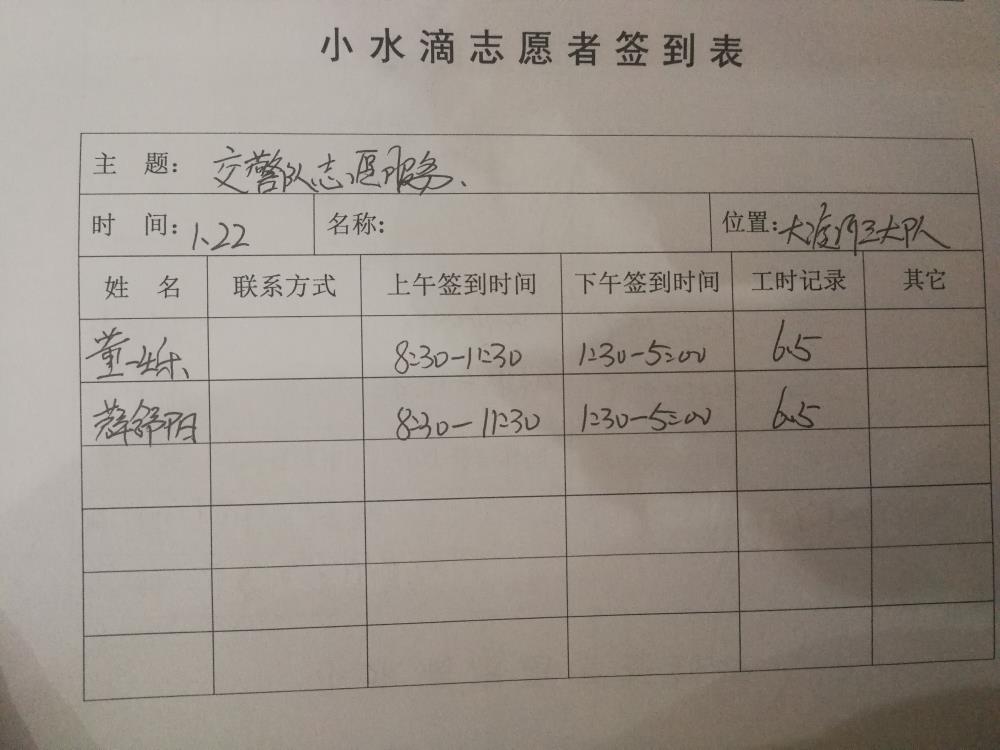 小水滴志愿者签到表
主 题: 交警队志愿服务、
时 间: 1、22 名称: 位置: 大渡河三大队
姓 名 联系方式 上午签到时间 下午签到时间 工时记录 其它
董一 8:30-11:30 1:30-5:00 6.5
薛舒阳 8:30-11:30 1:30-5:00 6.5